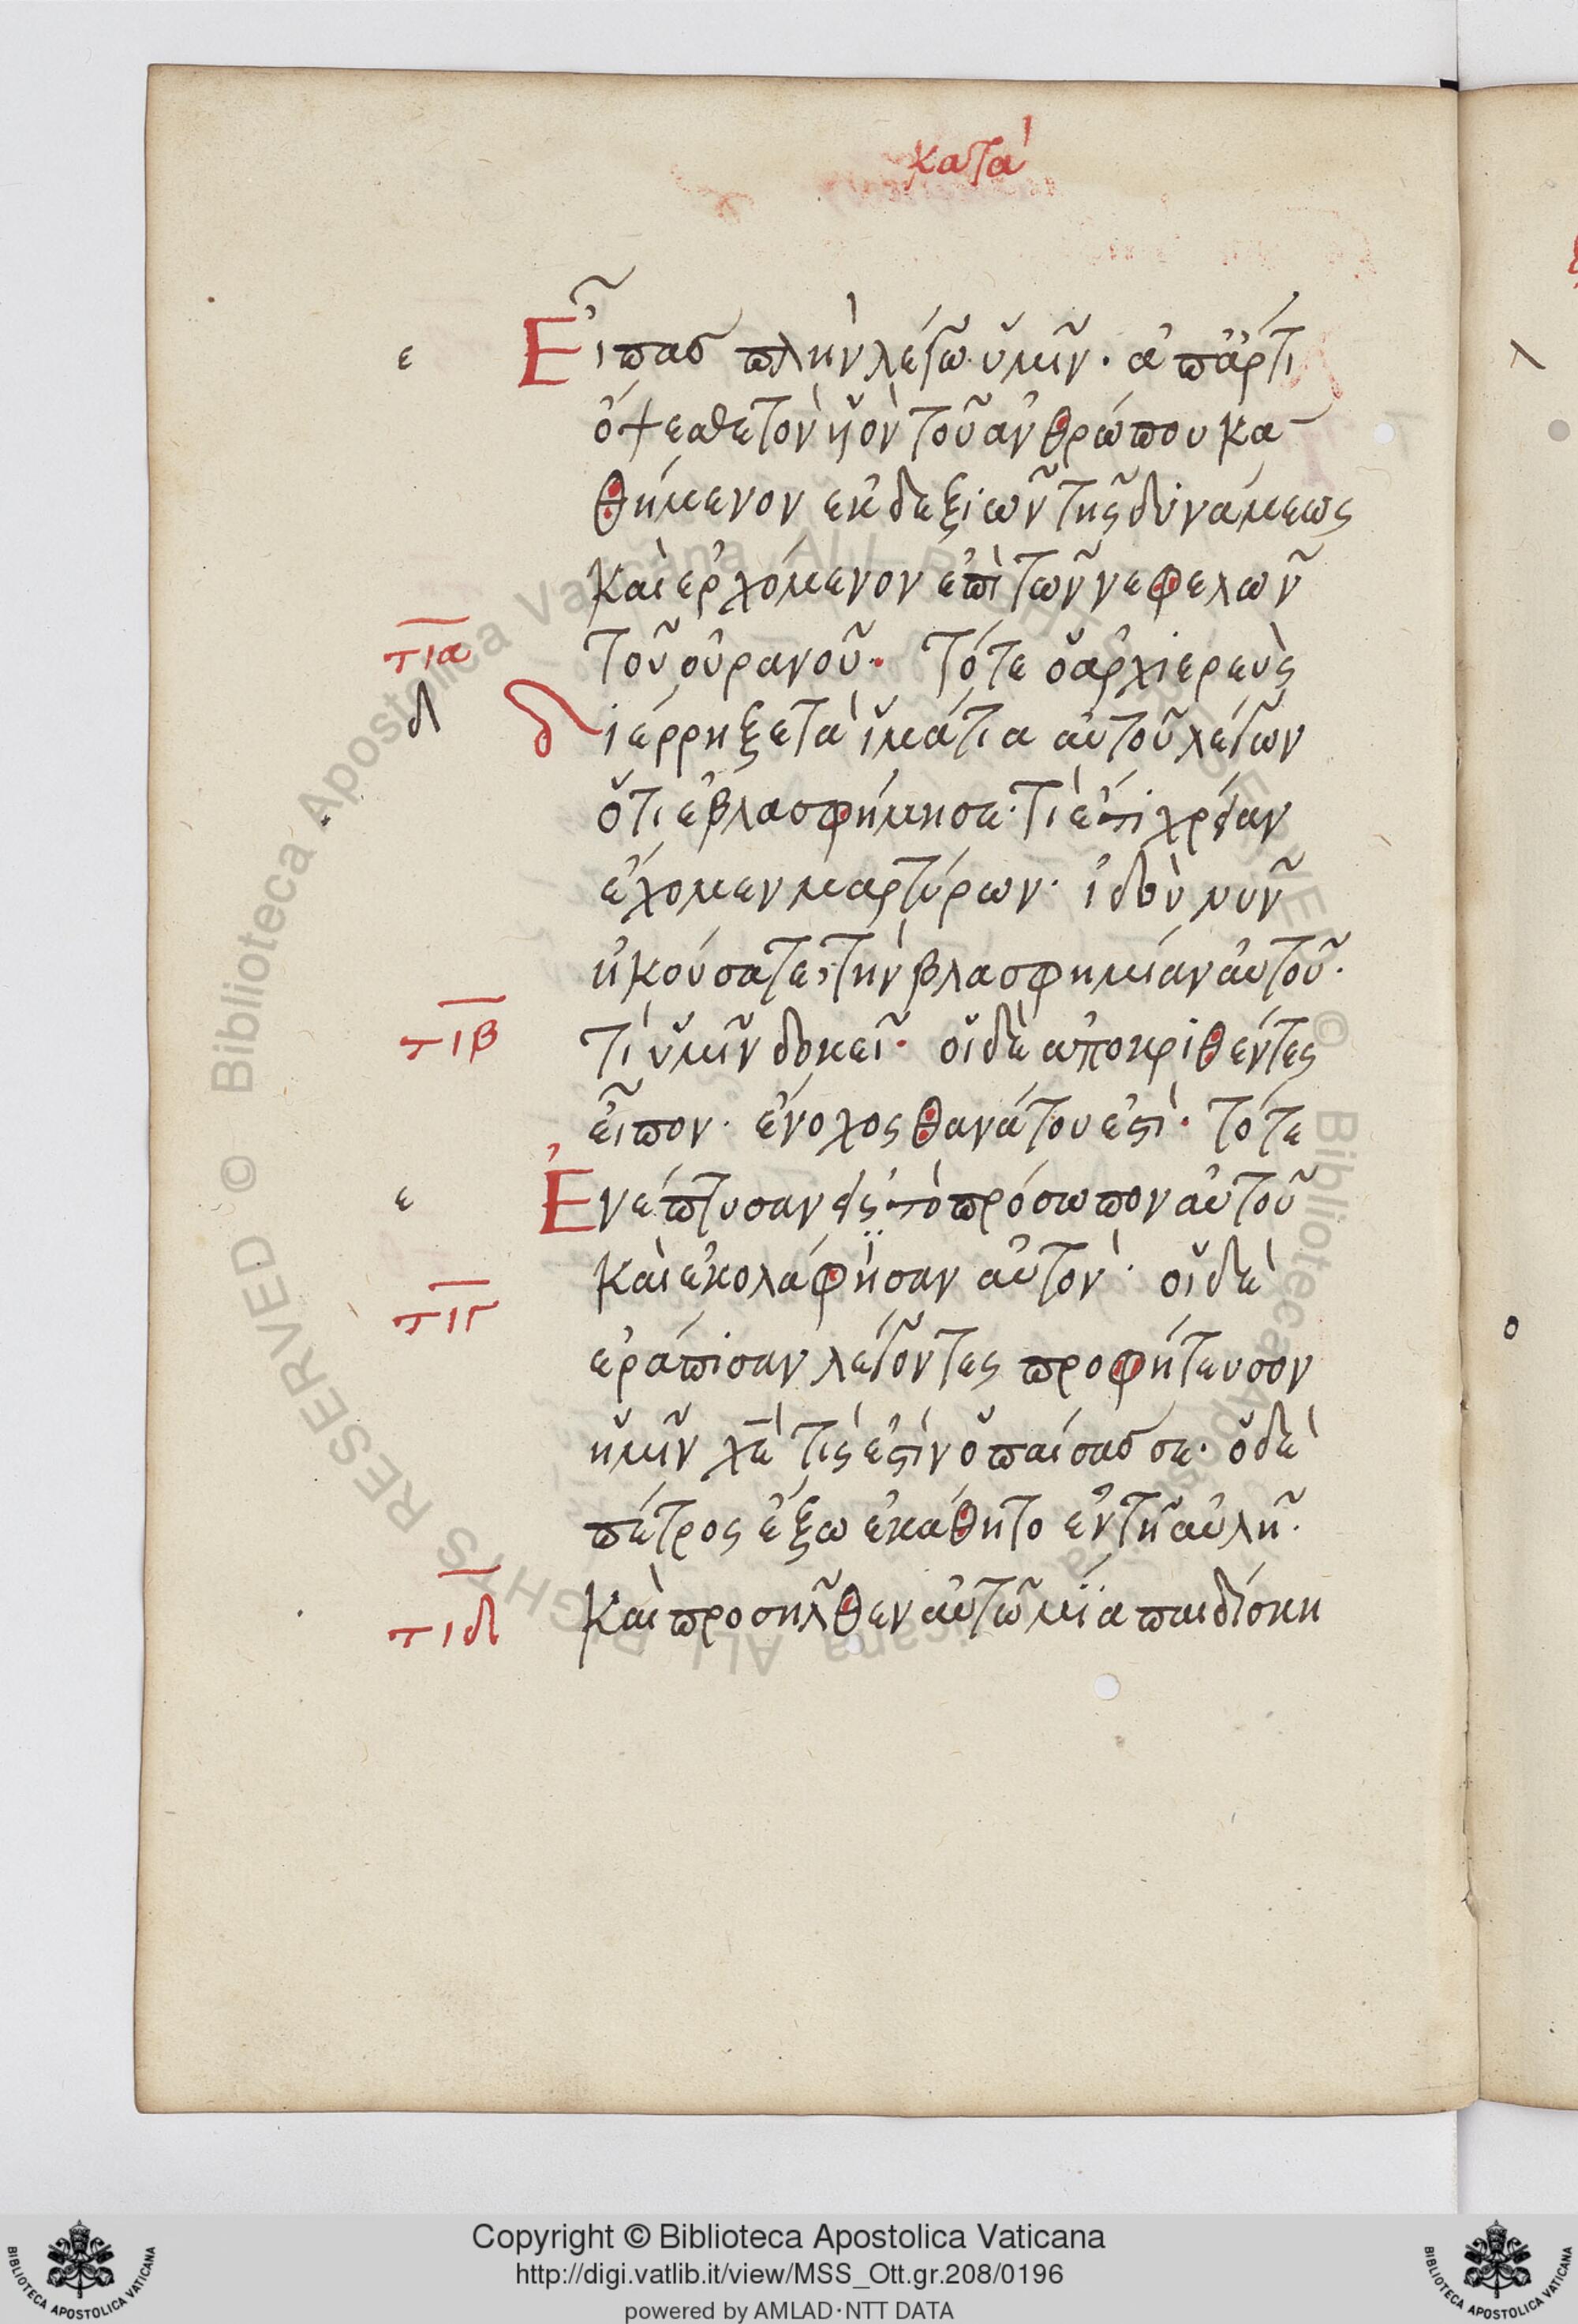 κατὰ
ε Εἶπας πλὴν λέγω ὑμῖν· ἀπἄρτι
ὄψεσθε τὸν ὑὸν τοῦ ἀνθρώπου κα-
θήμενον ἐκ δεξιῶν τῆς δυνάμεως
καὶ ἐρχόμενον ἐπὶ τῶν νεφελῶν
τια τοῦ οὐρανοῦ· Τότε ὁ ἀρχιερεὺς
δ διέρρηξε τὰ ἱμάτια αὐτοῦ λέγων
ὅτι ἐβλασφήμησε· τί ἔτι χρείαν
ἔχομεν μαρτύρων· ἰδοὺ νῦν
ἠκούσατε τὴν βλασφημίαν αὐτοῦ·
τιβ τί ὑμῖν δοκεῖ· οἱ δὲ ἀποκριθέντες
εἶπον· ἔνοχος θανάτου ἐστὶ· τότε
ε Ἐνέπτυσαν εἰς τὸ πρόσωπον αὐτοῦ
καὶ ἐκολάφησαν αὐτὸν· οἱ δὲ
τιγ
ἐράπισαν λέγοντες προφήτευσον
ἡμῖν χε τίς ἐστὶν ὁ παίσας σε· ὁ δὲ
πέτρος ἔξω ἐκάθητο ἐν τῆ αὐλῆ·
τιδ καὶ προσῆλθεν αὐτῶ μία παιδίσκη
λ
ο
© Biblioteca Apostolica Vaticana ALL RIGHTS RESERVED
Copyright © Biblioteca Apostolica Vaticana
http://digi.vatlib.it/view/MSS_Ott.gr.208/0196
powered by AMLAD·NTT DATA
BIBLIOTECA APOSTOLICA VATICANA
BIBLIOTECA APOSTOLICA VATICANA